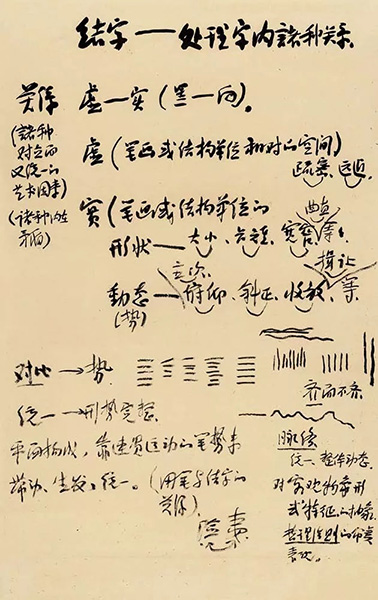 结字——处理字内诸种关系
关系 虚—实（黑—白）。
（诸种
对立而
又统一的
艺术因素）
（诸种内在
矛盾）
虚（笔画或结构单位相对的空间）
疏密、远近
实（笔画或结构单位的
曲直
形状——大小、长短、宽窄、等）
揖让
主次
动态——俯仰、斜正、收放、等
（势）
对比→势
齐而不齐
统一→形势完整
平面构成，靠连贯运动的笔势来
带动、生发、统一。（用笔与结字的
关系）
脉络
统一、整体动态。
对客观物象形
或特征的抽象